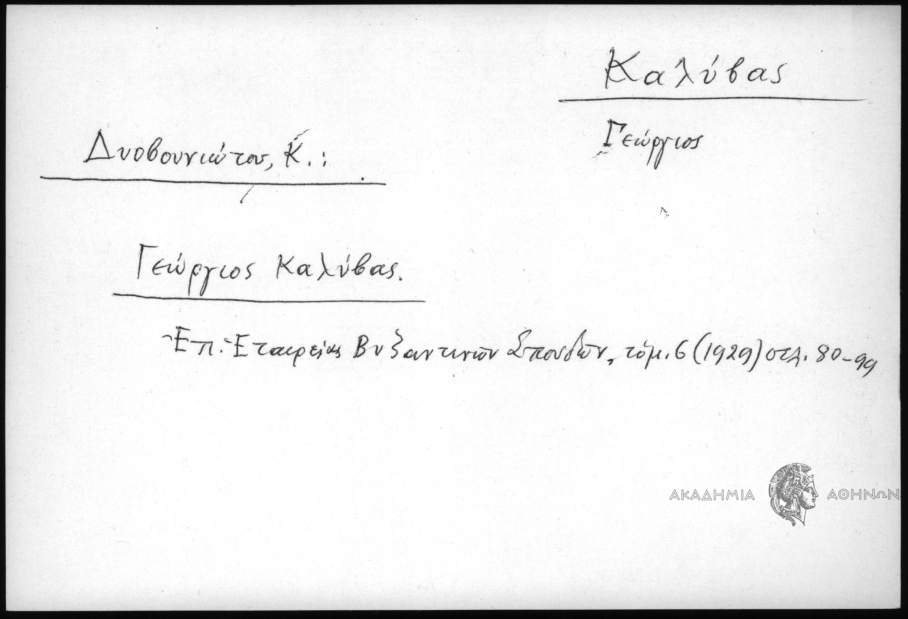 Καλύβας
Γεώργιος
Δυοβουνιώτου, Κ.:
Γεώργιος Καλύβας.
Ἐπ. Ἑταιρείας Βυζαντινῶν Σπουδῶν, τόμ. 6 (1929) σελ. 80-99
ΑΚΑΔΗΜΙΑ ΑΘΗΝΩΝ